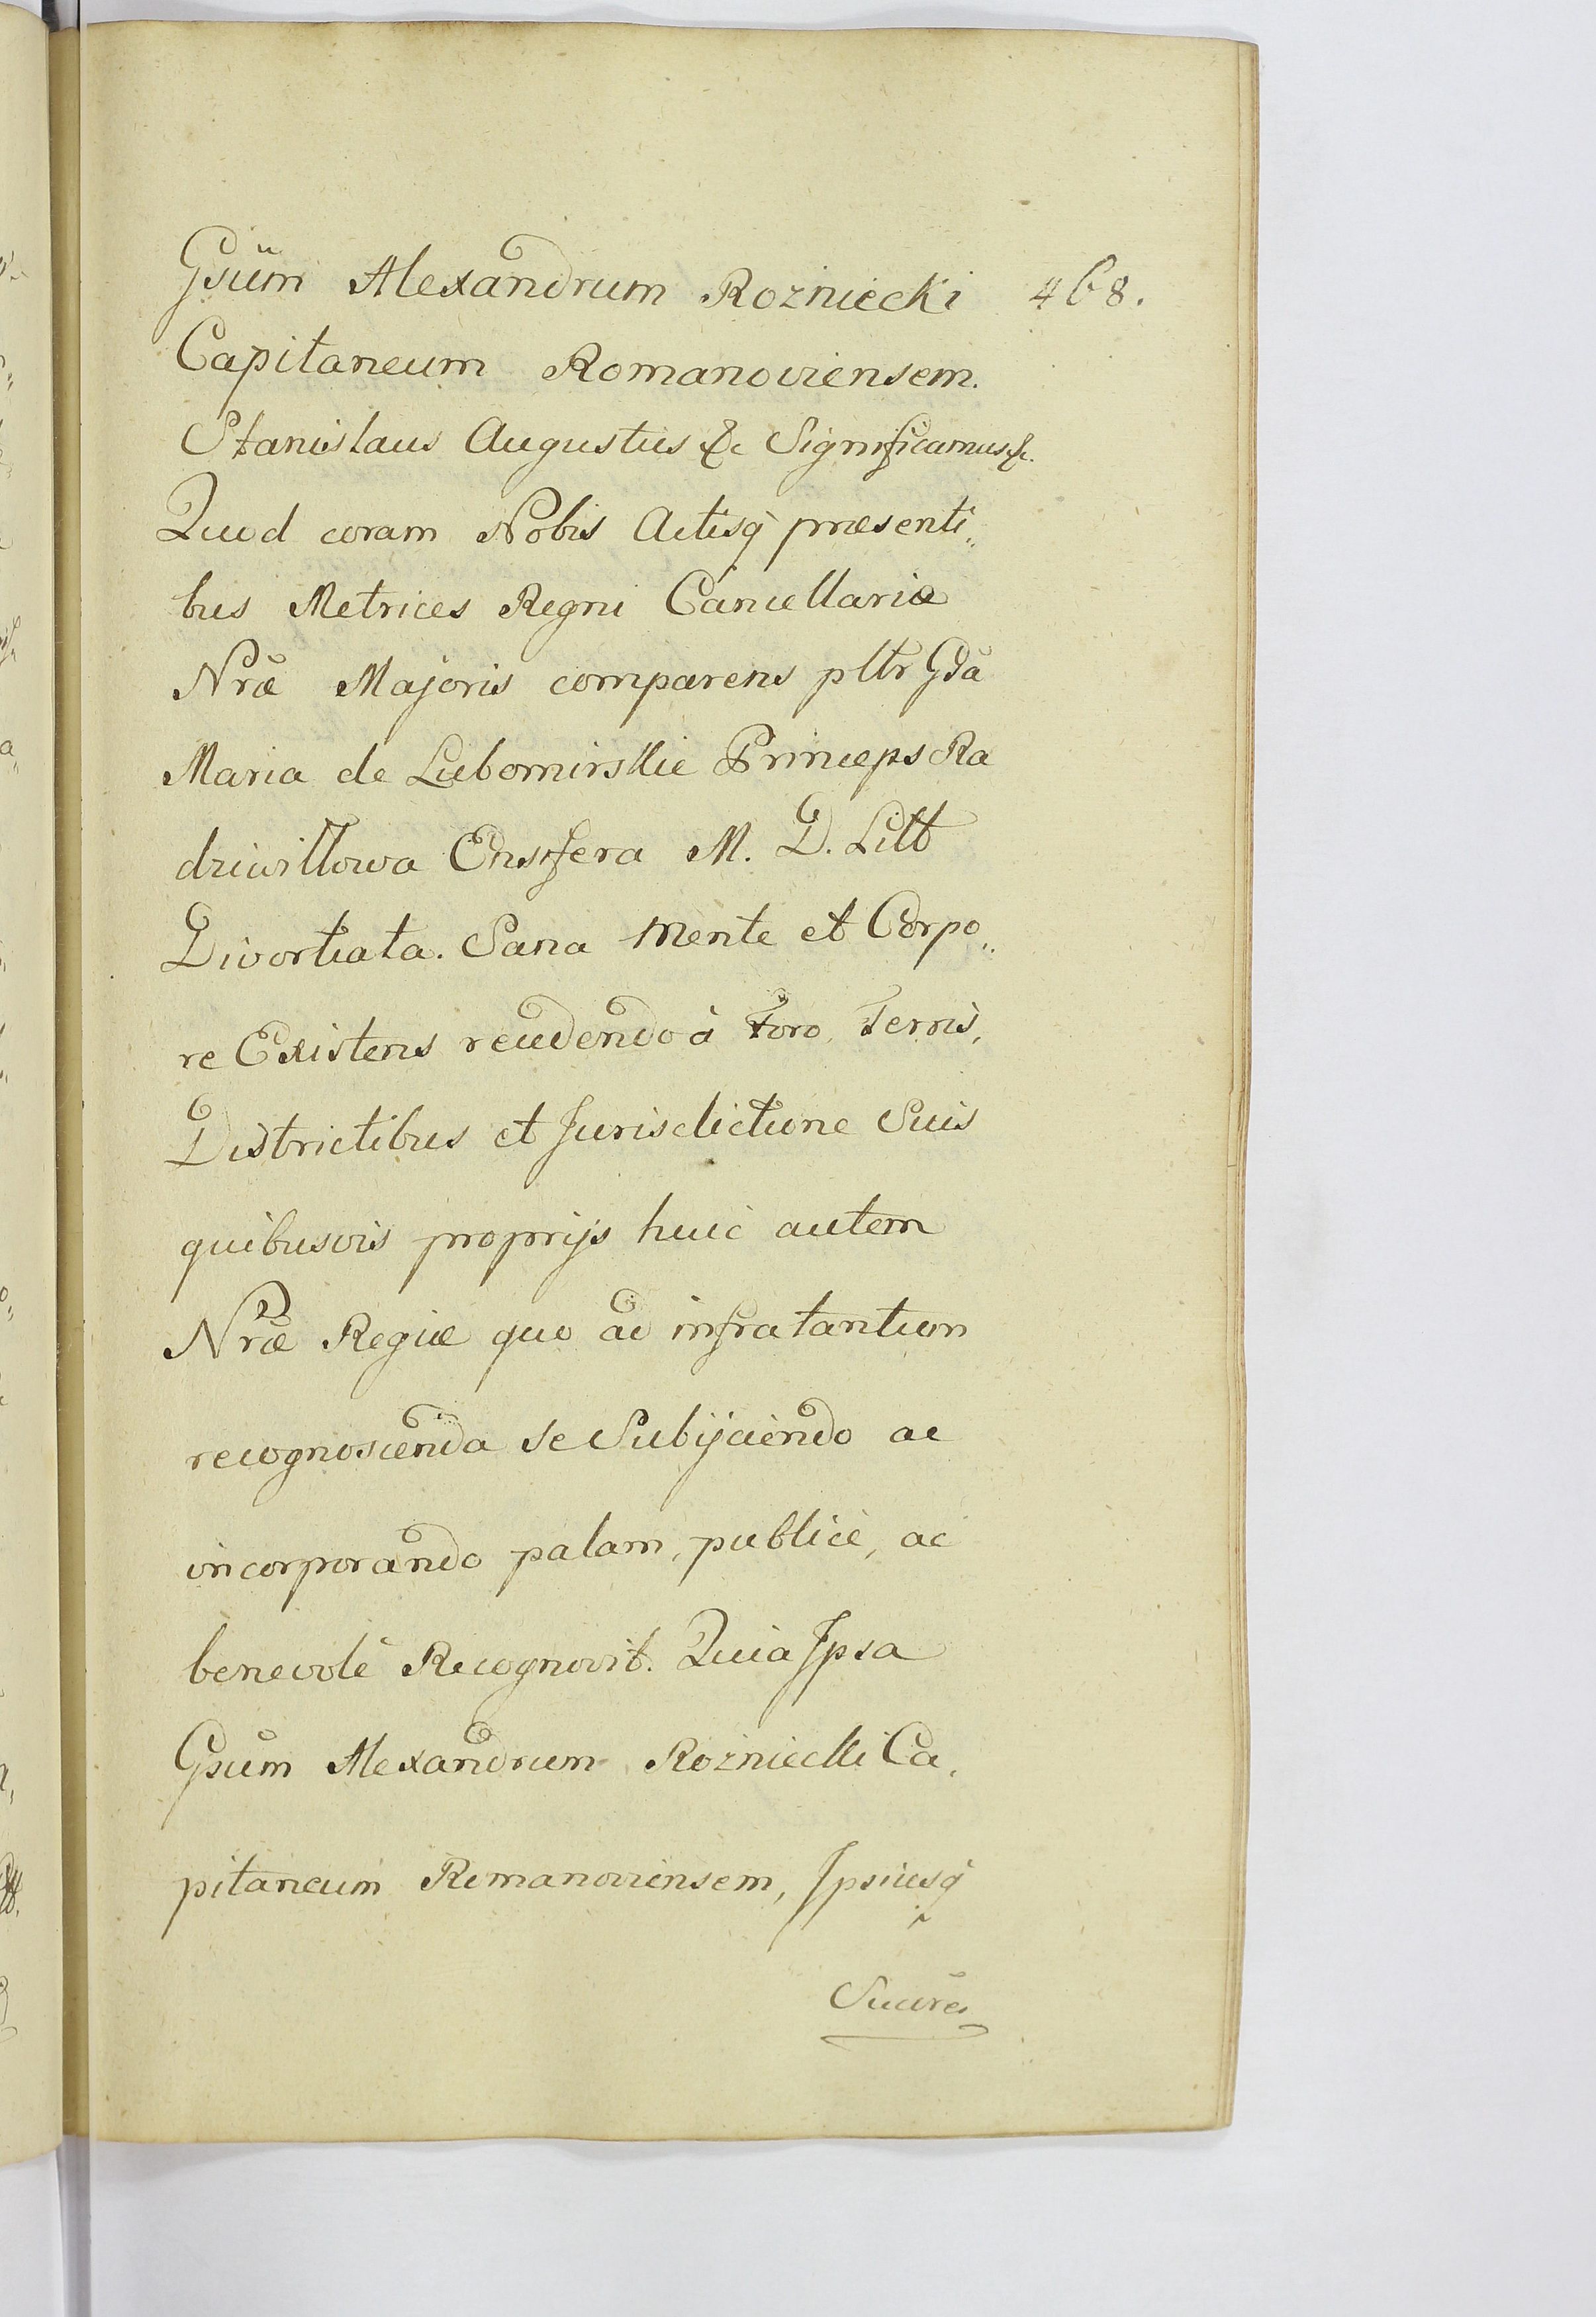 Gsum̃ Alexandrum Rozniecki 468.
Capitaneum Romanoviensem.
Stanislaus Augustus &c Significamus &c.
Quod coram Nobis Actisq̀ præsenti„
bus Metrices Regni Cancellariæ
Nræ̃ Majoris comparens plltr Gdã
Maria de Lubomirskie Princeps Ra
dziwiłłowa Ensifera M. D. Litt
Divortiata. Sana Mente et Corpo„
re Existens recedendo à Foro, Terris,
Districtibus et Jurisdictione Suis
quibusvis proprijs huic autem
Nræ̃ Regiæ quo ad infra tantum
recognoscenda se Subijciendo ac
incorporando palam, publicè, ac
benevolè Recognovit. Quia Ipsa
Gsum̃ Alexandrum Rozniecki Ca,
pitaneum Romanoviensem, Ipsiusq̀
Succres̃